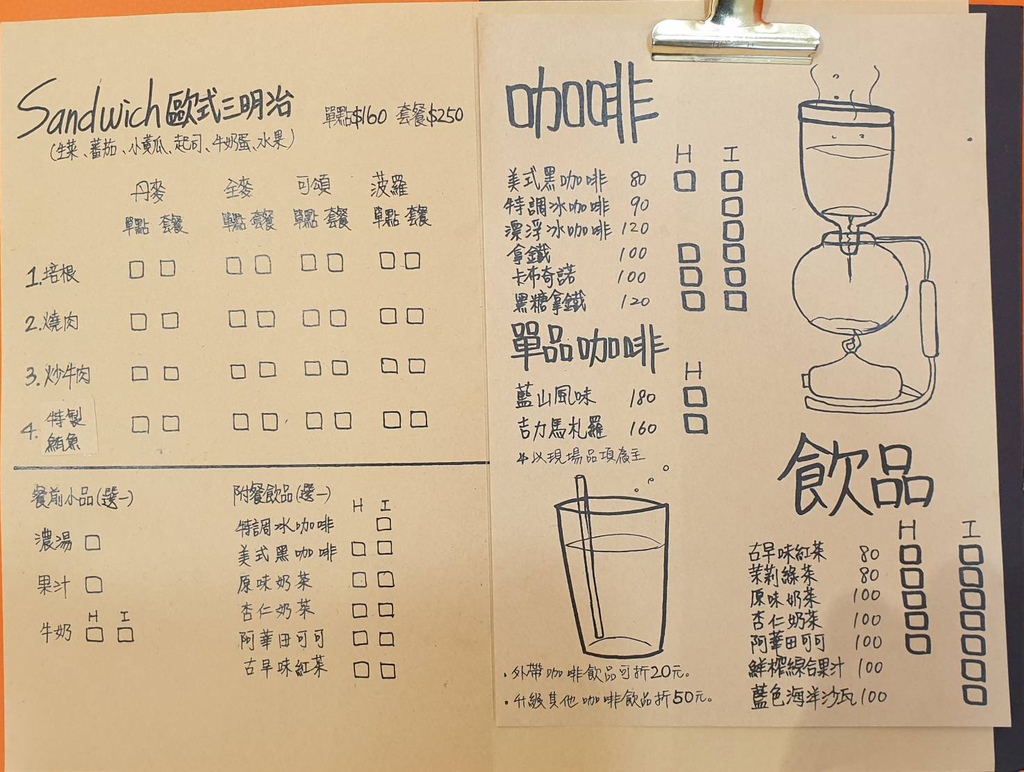 Sandwich 歐式三明治 單點$160 套餐$250
(生菜、蕃茄、小黃瓜、起司、牛奶蛋、水果)
丹麥 全麥 可頌 菠羅
單點 套餐 單點 套餐 單點 套餐 單點 套餐
1.培根
2.燒肉
3.炒牛肉
4.特製鮪魚
餐前小品(選一)
濃湯
果汁
H I
牛奶
附餐飲品(選一) H I
特調冰咖啡
美式黑咖啡
原味奶茶
杏仁奶茶
阿華田可可
古早味紅茶
咖啡
H I
美式黑咖啡 80
特調冰咖啡 90
漂浮冰咖啡 120
拿鐵 100
卡布奇諾 100
黑糖拿鐵 120
單品咖啡
H
藍山風味 180
吉力馬札羅 160
*以現場品項為主
飲品
H I
古早味紅茶 80
茉莉綠茶 80
原味奶茶 100
杏仁奶茶 100
阿華田可可 100
鮮榨綜合果汁 100
藍色海洋沙瓦 100
·外帶咖啡飲品可折20元。
·升級其他咖啡飲品折50元。